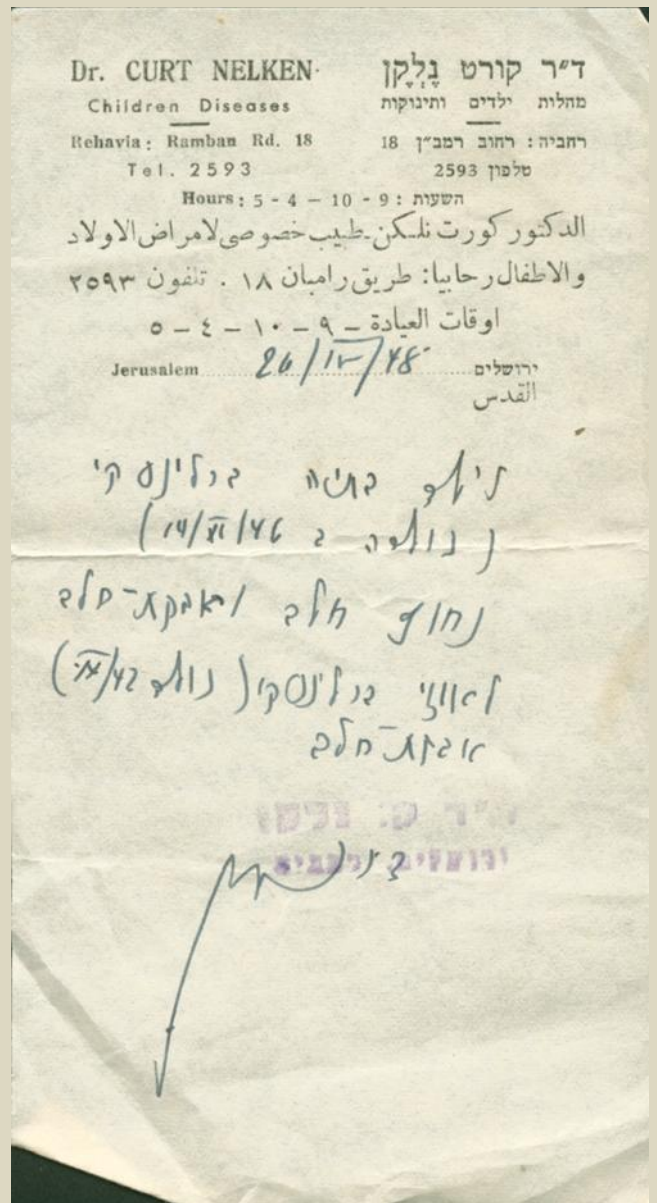 Dr. CURT NELKEN
Children Diseases
Rehavia: Ramban Rd. 18
Tel. 2593
ד״ר קורט נֶלְקֶן
מחלות ילדים ותינוקות
רחביה: רחוב רמב״ן 18
טלפון 2593
Hours: 5 - 4 — 10 - 9 : השעות
الدكتور كورت نلكن طبيب خصوصي لامراض الاولاد
والاطفال رحابيا: طريق رامبان ١٨ . تلفون ٢٥٩٣
اوقات العيادة - ٩ - ١٠ - ٤ - ٥
Jerusalem 26/IV/48 ירושלים
القدس
ברלינסקי
(נולדה ב 14/XI/46)
נחוץ חלב ואבקת-חלב
לאוזי ברלינסקי (נולד 42/)
אבקת-חלב
ד״ר ק. נלקן
ירושלים, רחביה